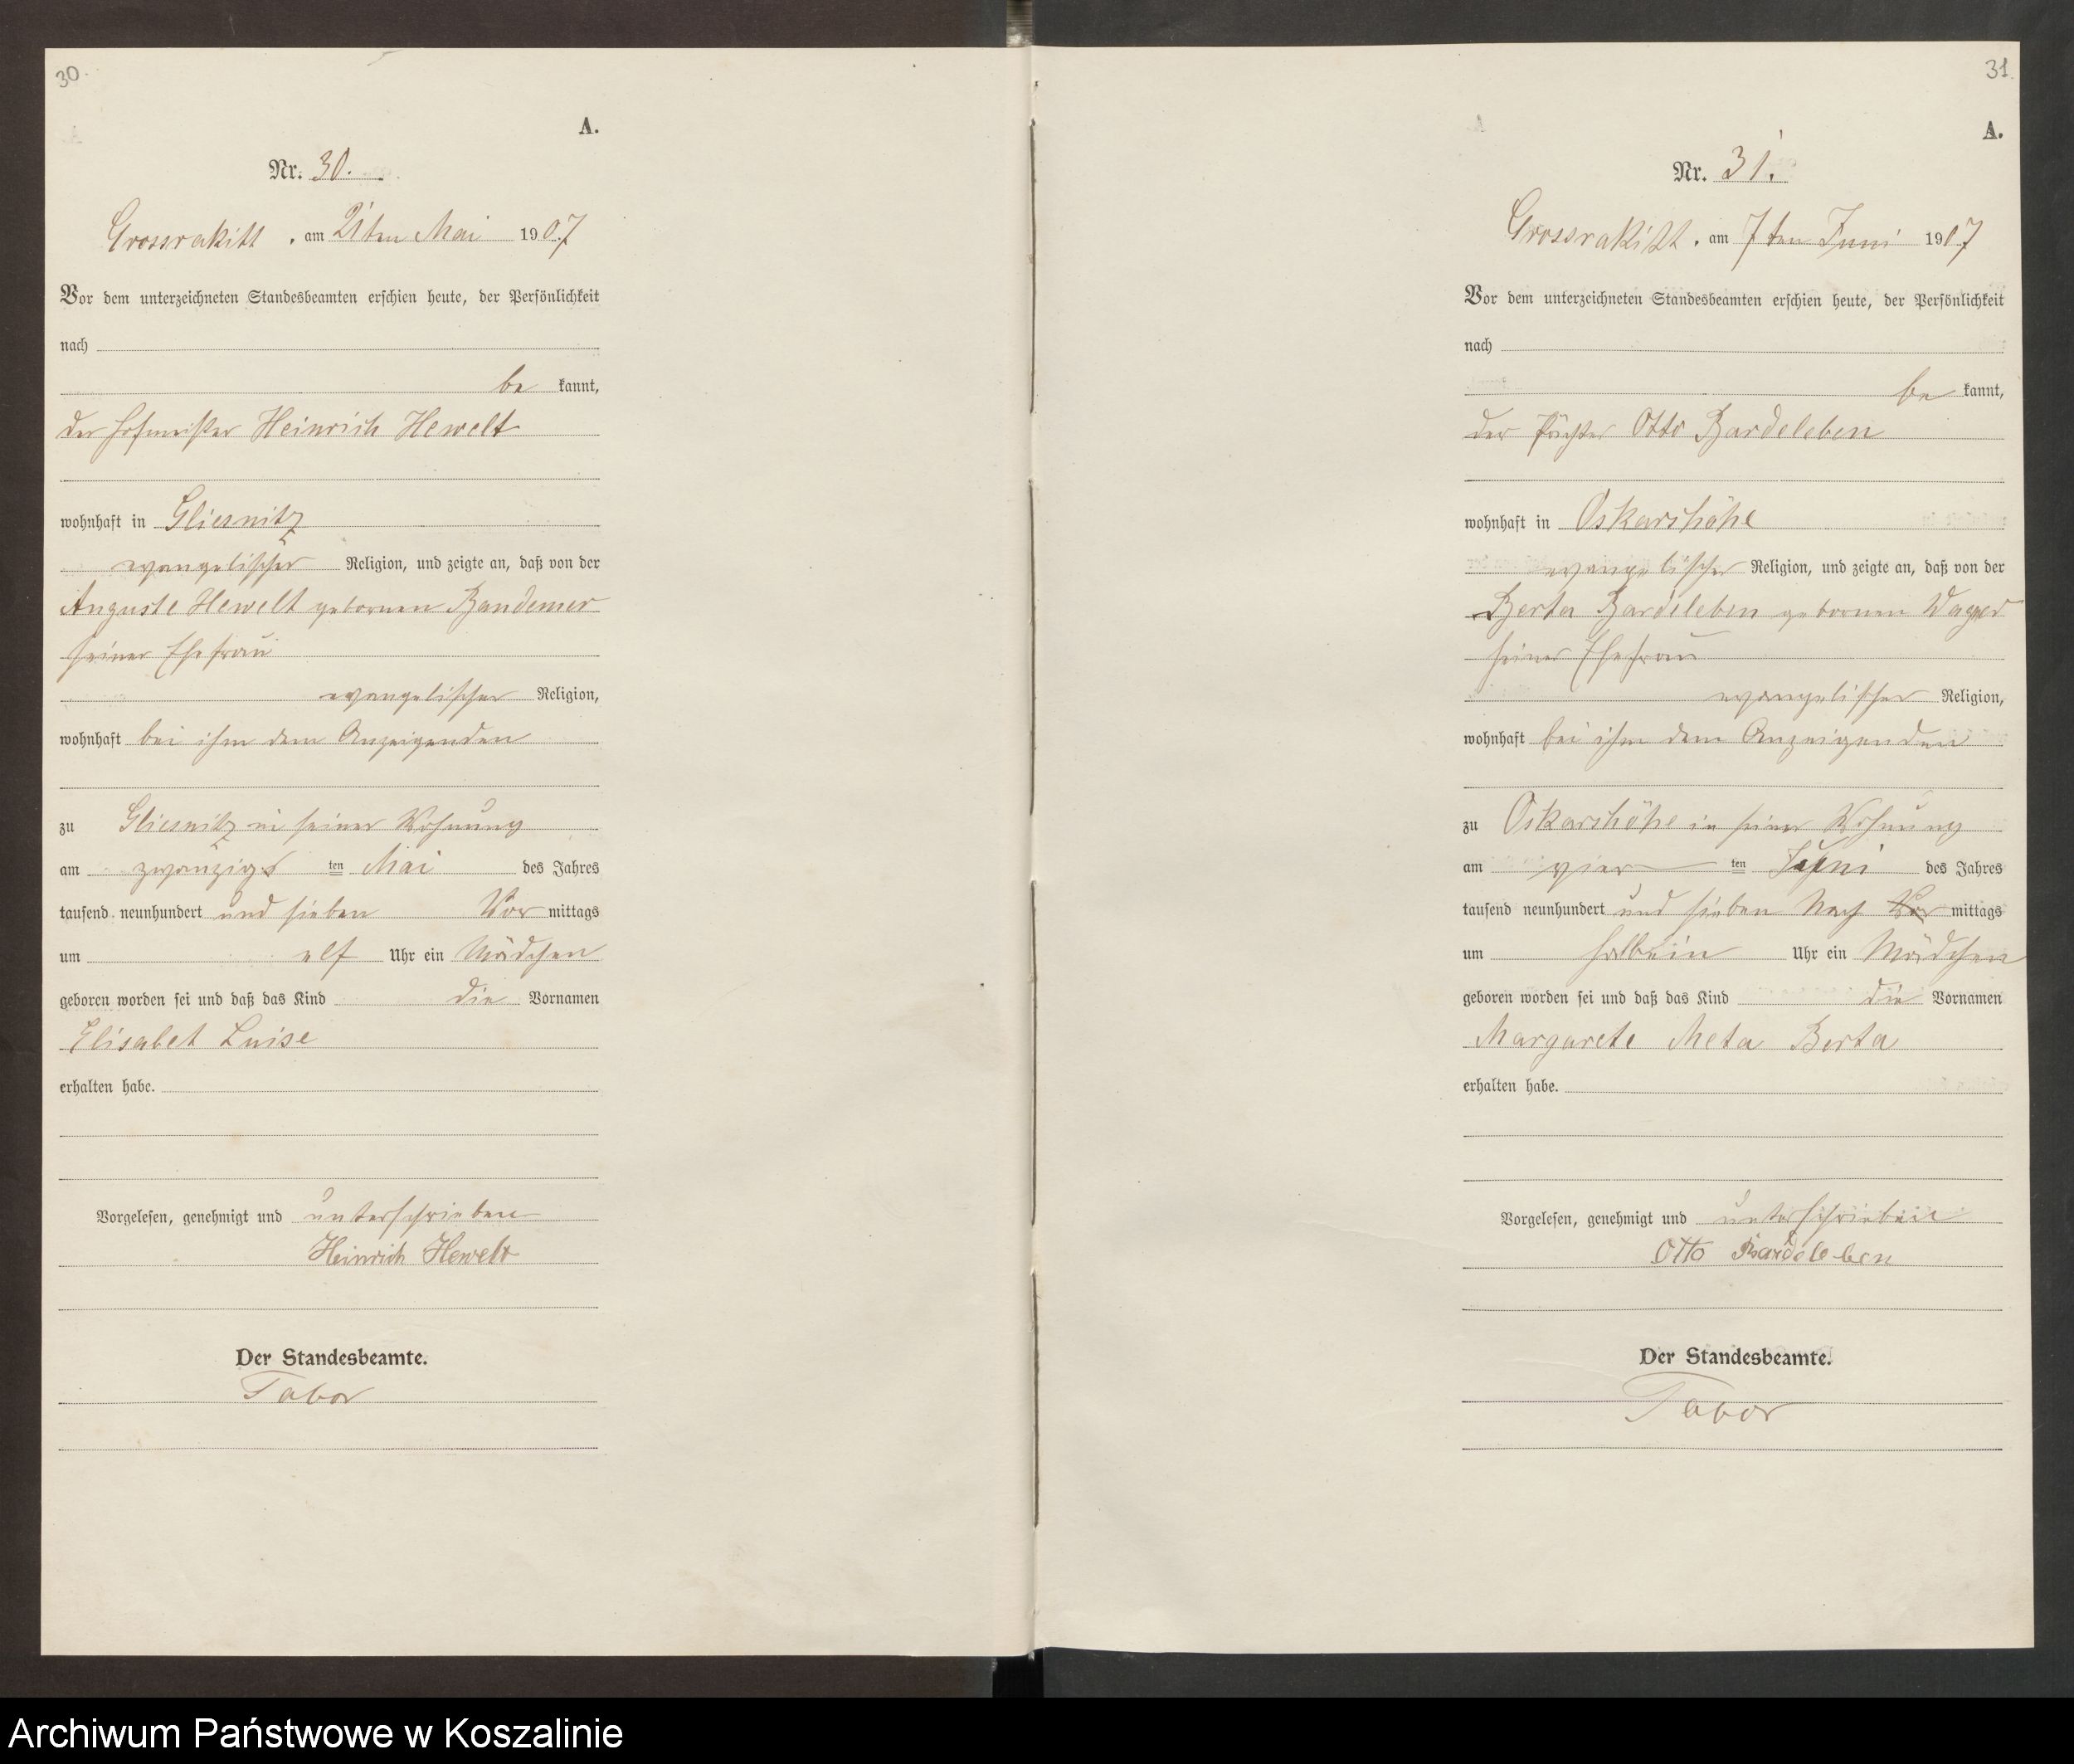 30.
A.
Nr. 30.
Grossrakitt, am 21ten Mai 1907
Vor dem unterzeichneten Standesbeamten erschien heute, der Persönlichkeit
nach
be kannt,
der Hofmeister Heinrich Hewelt
wohnhaft in Gliesnitz
evangelischer Religion, und zeigte an, daß von der
Auguste Hewelt gebornen Bandemer
seiner Ehefrau
evangelischer Religion,
wohnhaft bei ihm dem Anzeigenden
zu Gliesnitz in seiner Wohnung
am zwanzigs ten Mai des Jahres
tausend neunhundert und sieben Vor mittags
um elf Uhr ein Mädchen
geboren worden sei und daß das Kind die Vornamen
Elisabet Luise
erhalten habe.
Vorgelesen, genehmigt und unterschrieben
Heinrich Hewelt
Der Standesbeamte.
Tabor
31
A.
Nr. 31.
Grossrakitt, am 7ten Juni 1907
Vor dem unterzeichneten Standesbeamten erschien heute, der Persönlichkeit
nach
be kannt,
der Pächter Otto Bardeleben
wohnhaft in Oskarshöhe
evangelischer Religion, und zeigte an, daß von der
Berta Bardeleben gebornen Wagner
seiner Ehefrau
evangelischer Religion,
wohnhaft bei ihm dem Anzeigenden
zu Oskarshöhe in seiner Wohnung
am vier ten Juni des Jahres
tausend neunhundert und sieben Nach Vor mittags
um halbein Uhr ein Mädchen
geboren worden sei und daß das Kind die Vornamen
Margarete Meta Berta
erhalten habe.
Vorgelesen, genehmigt und unterschrieben
Otto Bardeleben
Der Standesbeamte.
Tabor
Archiwum Państwowe w Koszalinie